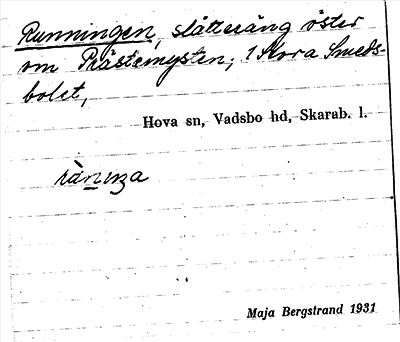 Runningen, slåtteräng öster
om Prästemysten; 1 Stora Smeds-
bolet,
Hova sn, Vadsbo hd, Skarab. l.
Maja Bergstrand 1931